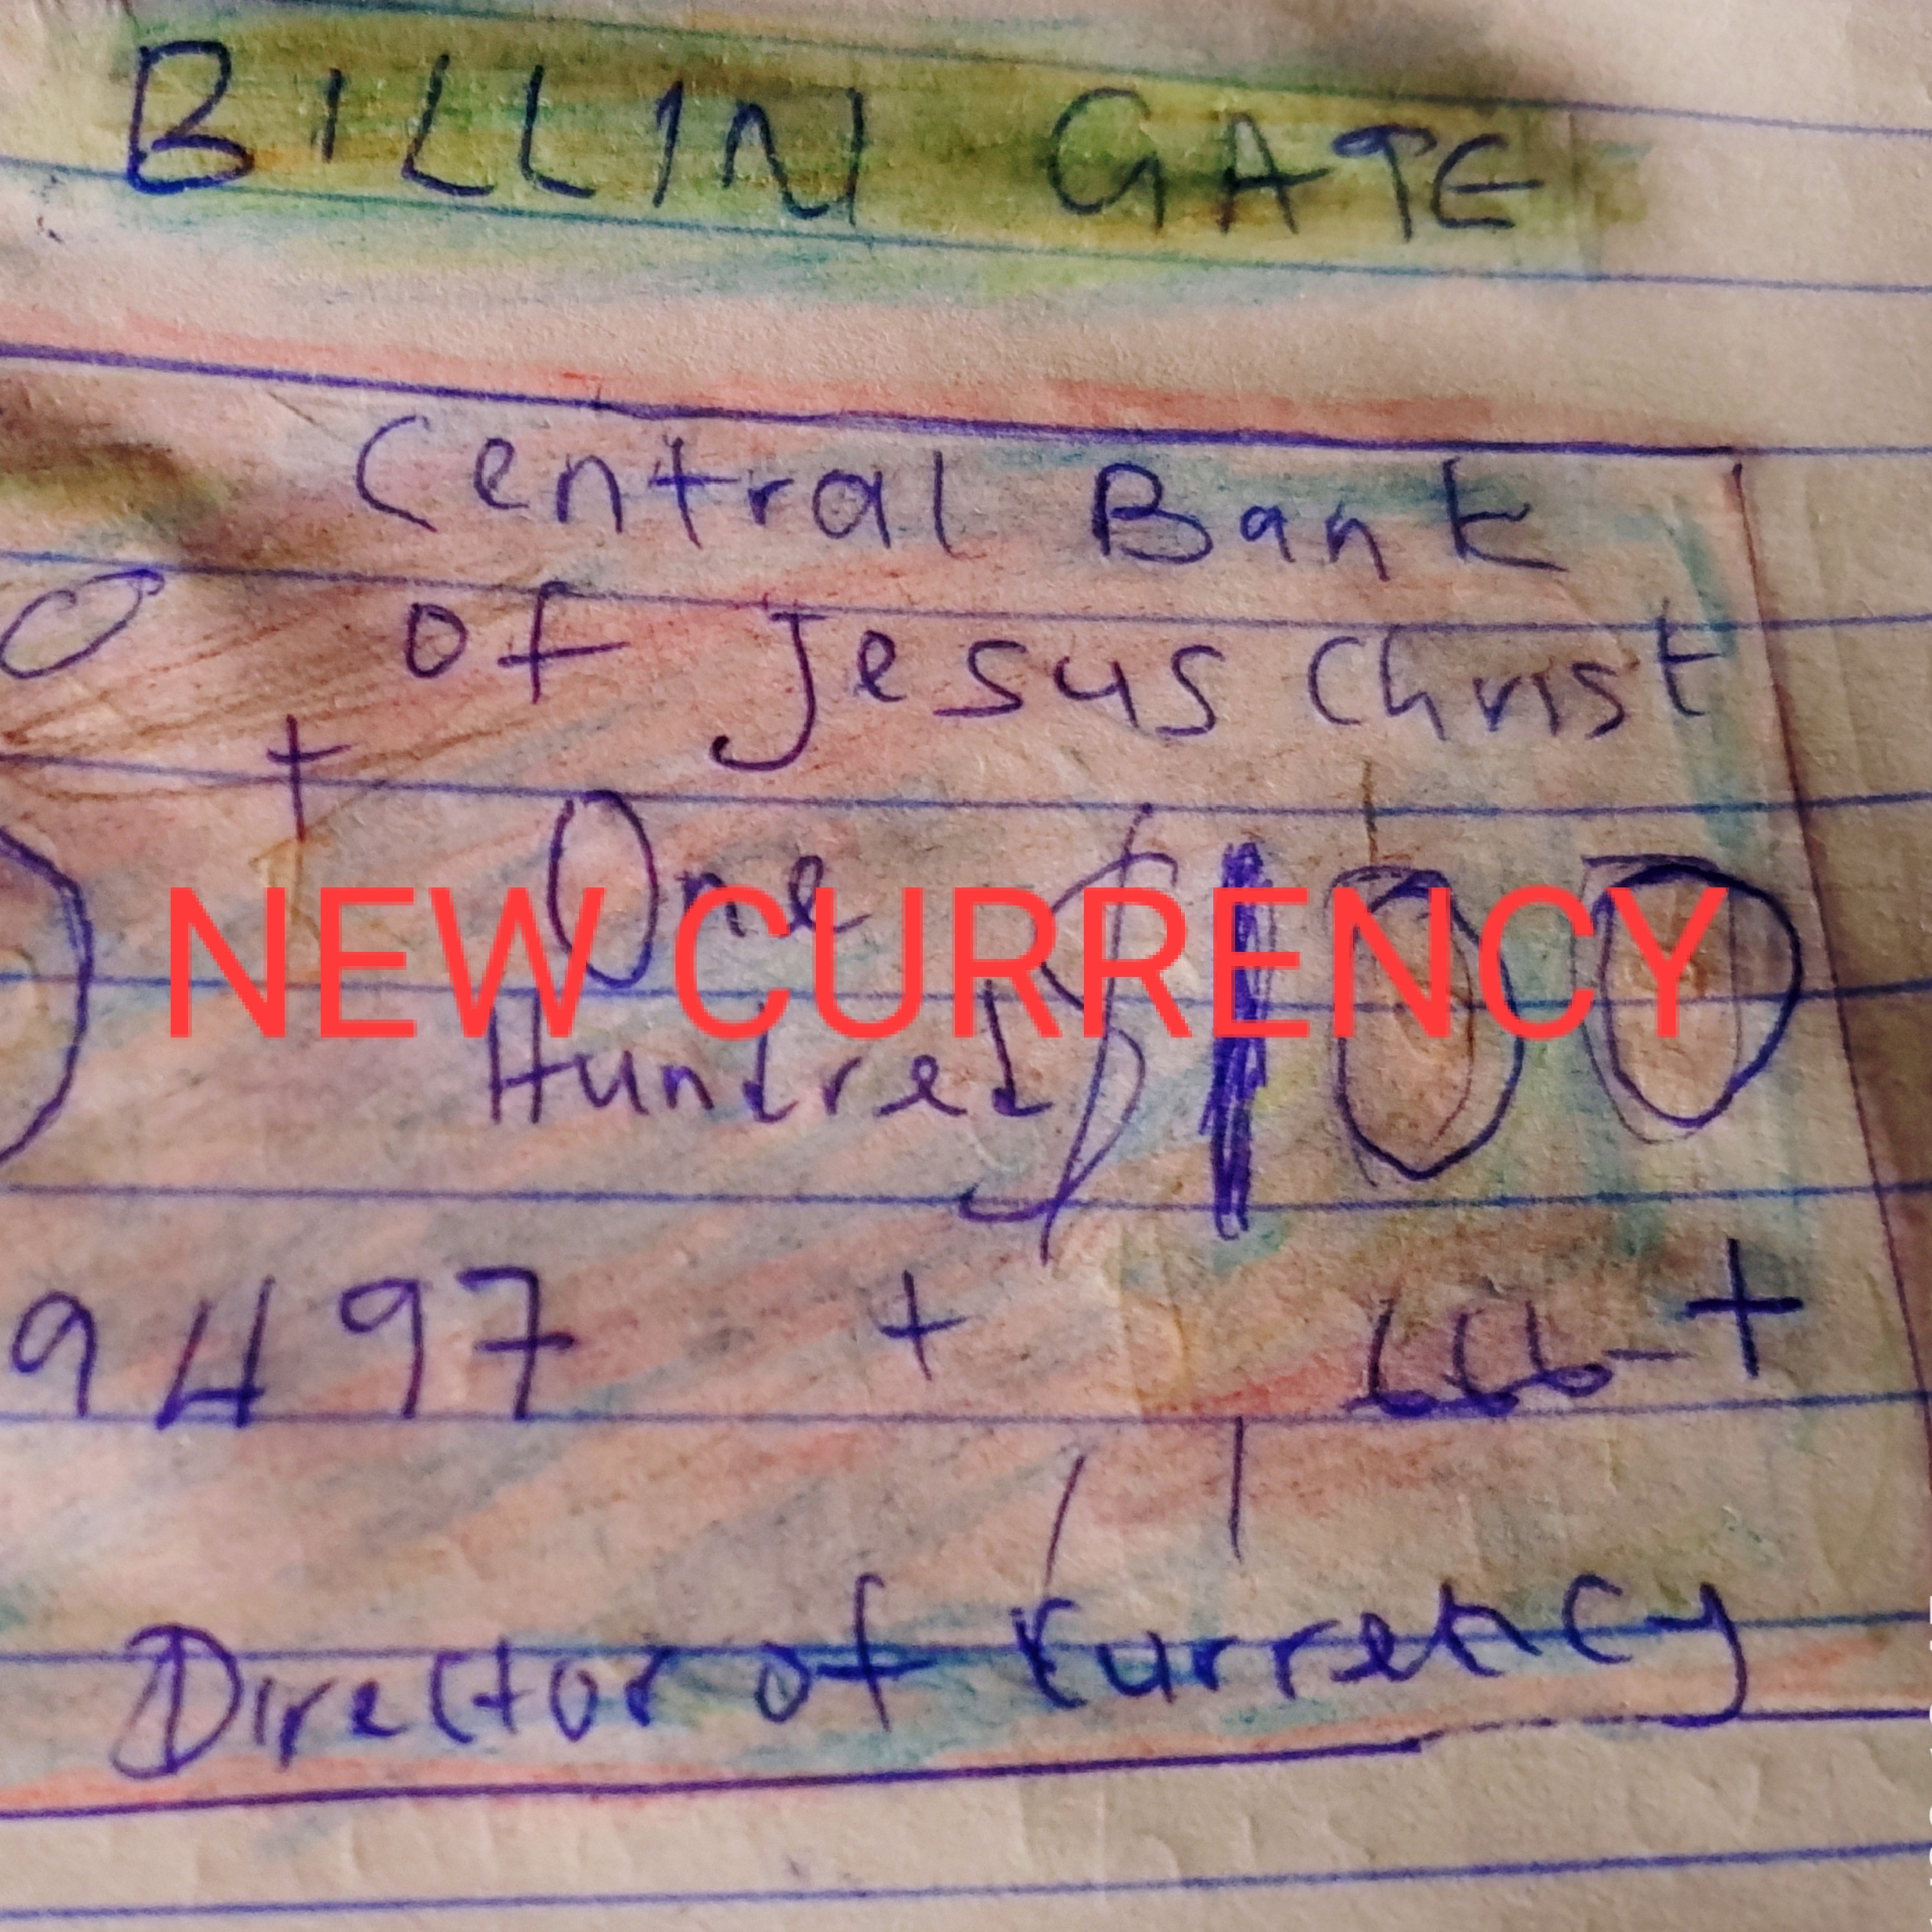 BILLIN GATE
Central Bank
of Jesus Christ
One
NEW CURRENCY
$100
Hundred
9497
Director of Currency